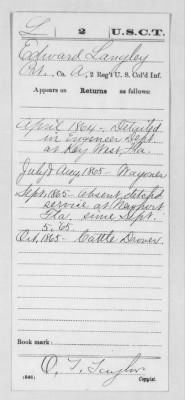 L 2 U.S.C.T.
Edward Langley
Pvt., Co. A, 2 Reg't U. S. Col'd Inf.
Appears on Returns as follows:
April 1864 - Detailed
in Engineer Dept.
at Key West, Fla.
July & Aug 1865 - Wagoner
Sept. 1865 - absent detchd
service at Newport
Fla. since Sept.
5, '65
Oct, 1865 - Cattle Drover.
Book mark:
(546)
Copyist.